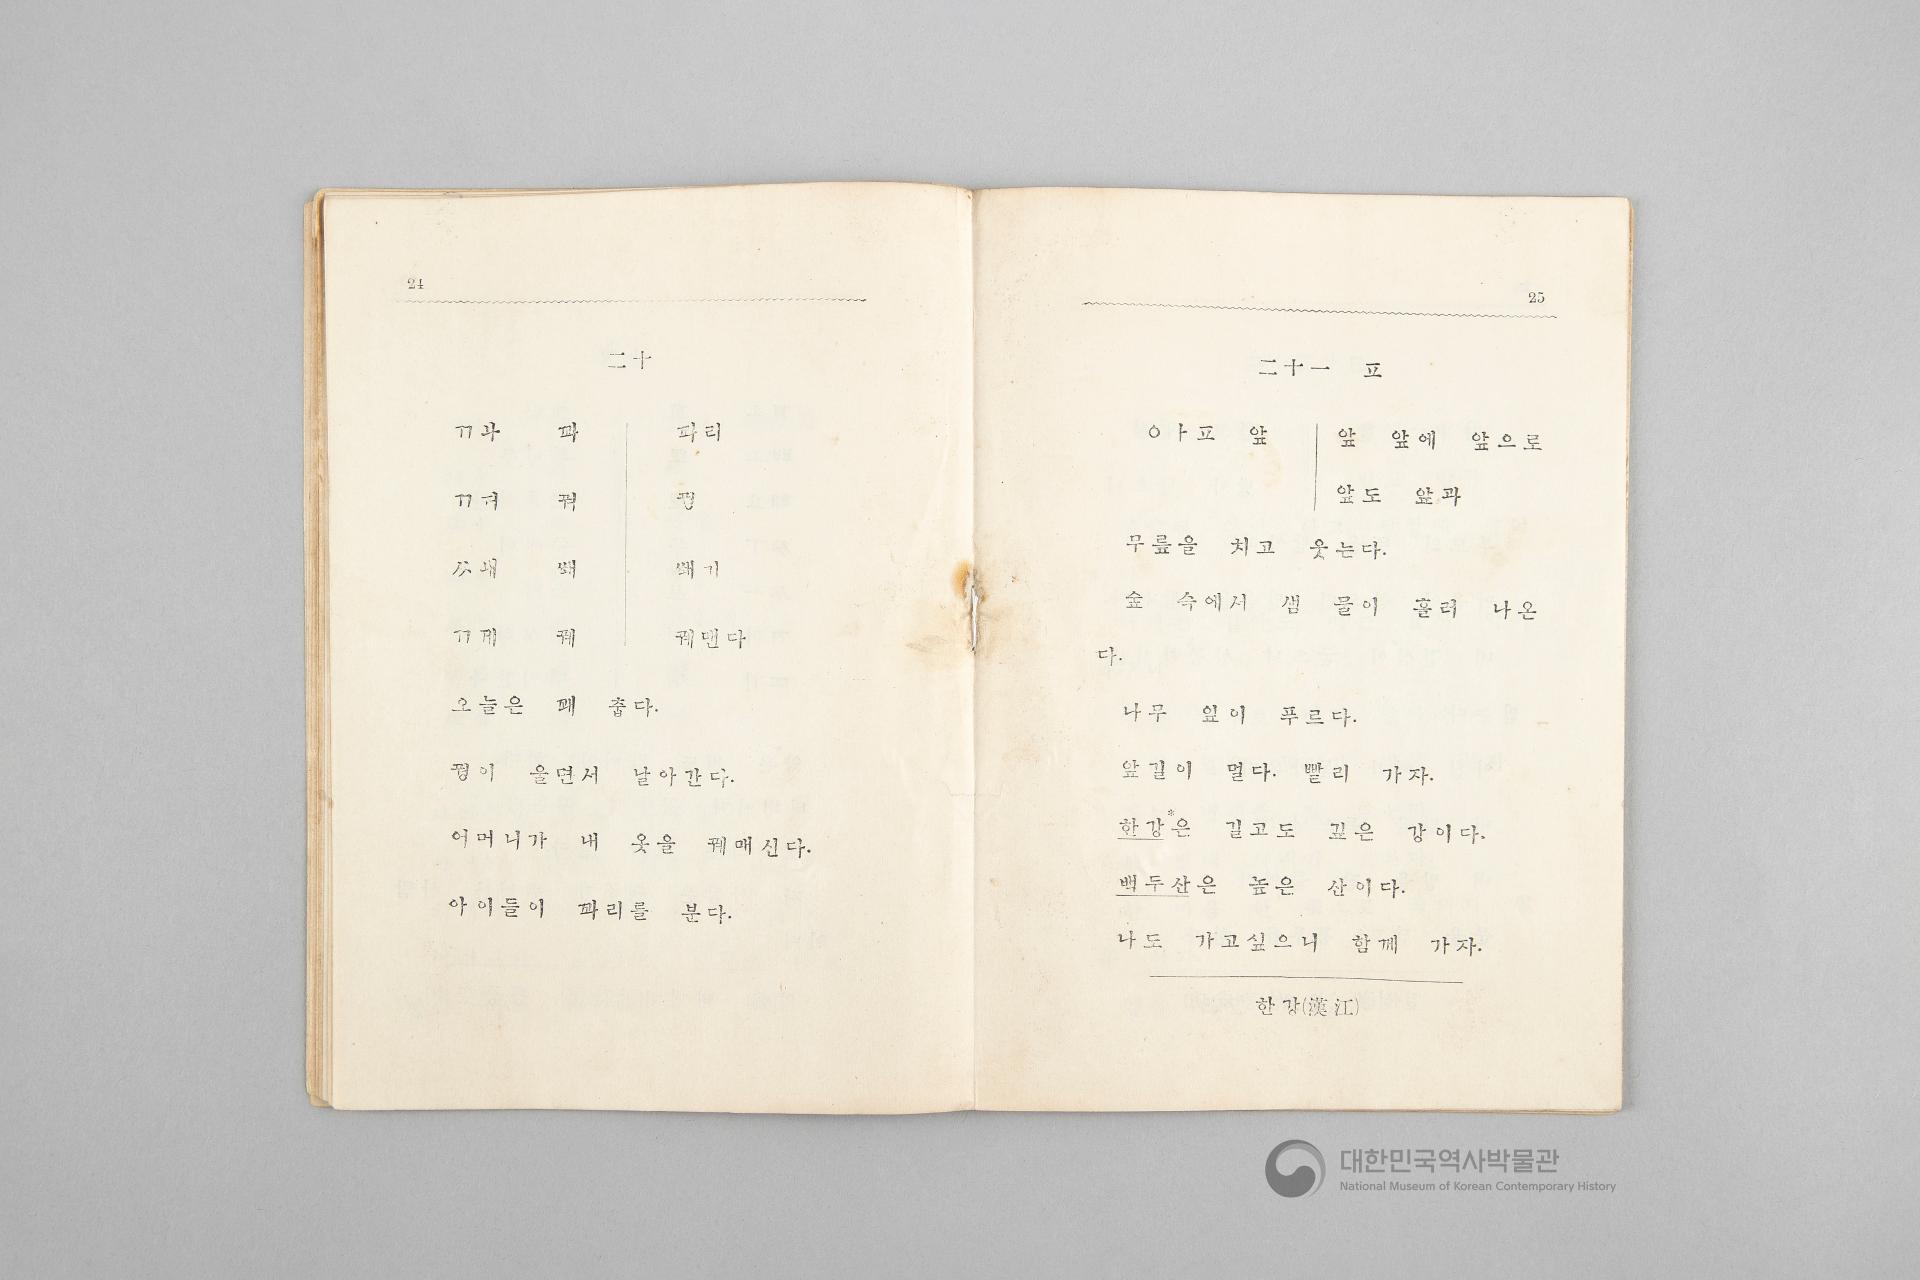 24
二十
ㄲㅘ 꽈 꽈리
ㄲㅝ 꿔 꿩
ㅆㅙ 쐐 쐐기
ㄲㅞ 꿰 꿰맨다
오늘은 꽤 춥다.
꿩이 울면서 날아간다.
어머니가 내 옷을 꿰매신다.
아이들이 꽈리를 분다.
25
二十一 ㅍ
ㅇㅏㅍ 앞 앞 앞에 앞으로
앞도 앞과
무릎을 치고 웃는다.
숲 속에서 샘 물이 흘러 나온
다.
나무 잎이 푸르다.
앞길이 멀다. 빨리 가자.
한강*은 길고도 깊은 강이다.
백두산은 높은 산이다.
나도 가고싶으니 함께 가자.
한강(漢江)
대한민국역사박물관
National Museum of Korean Contemporary History